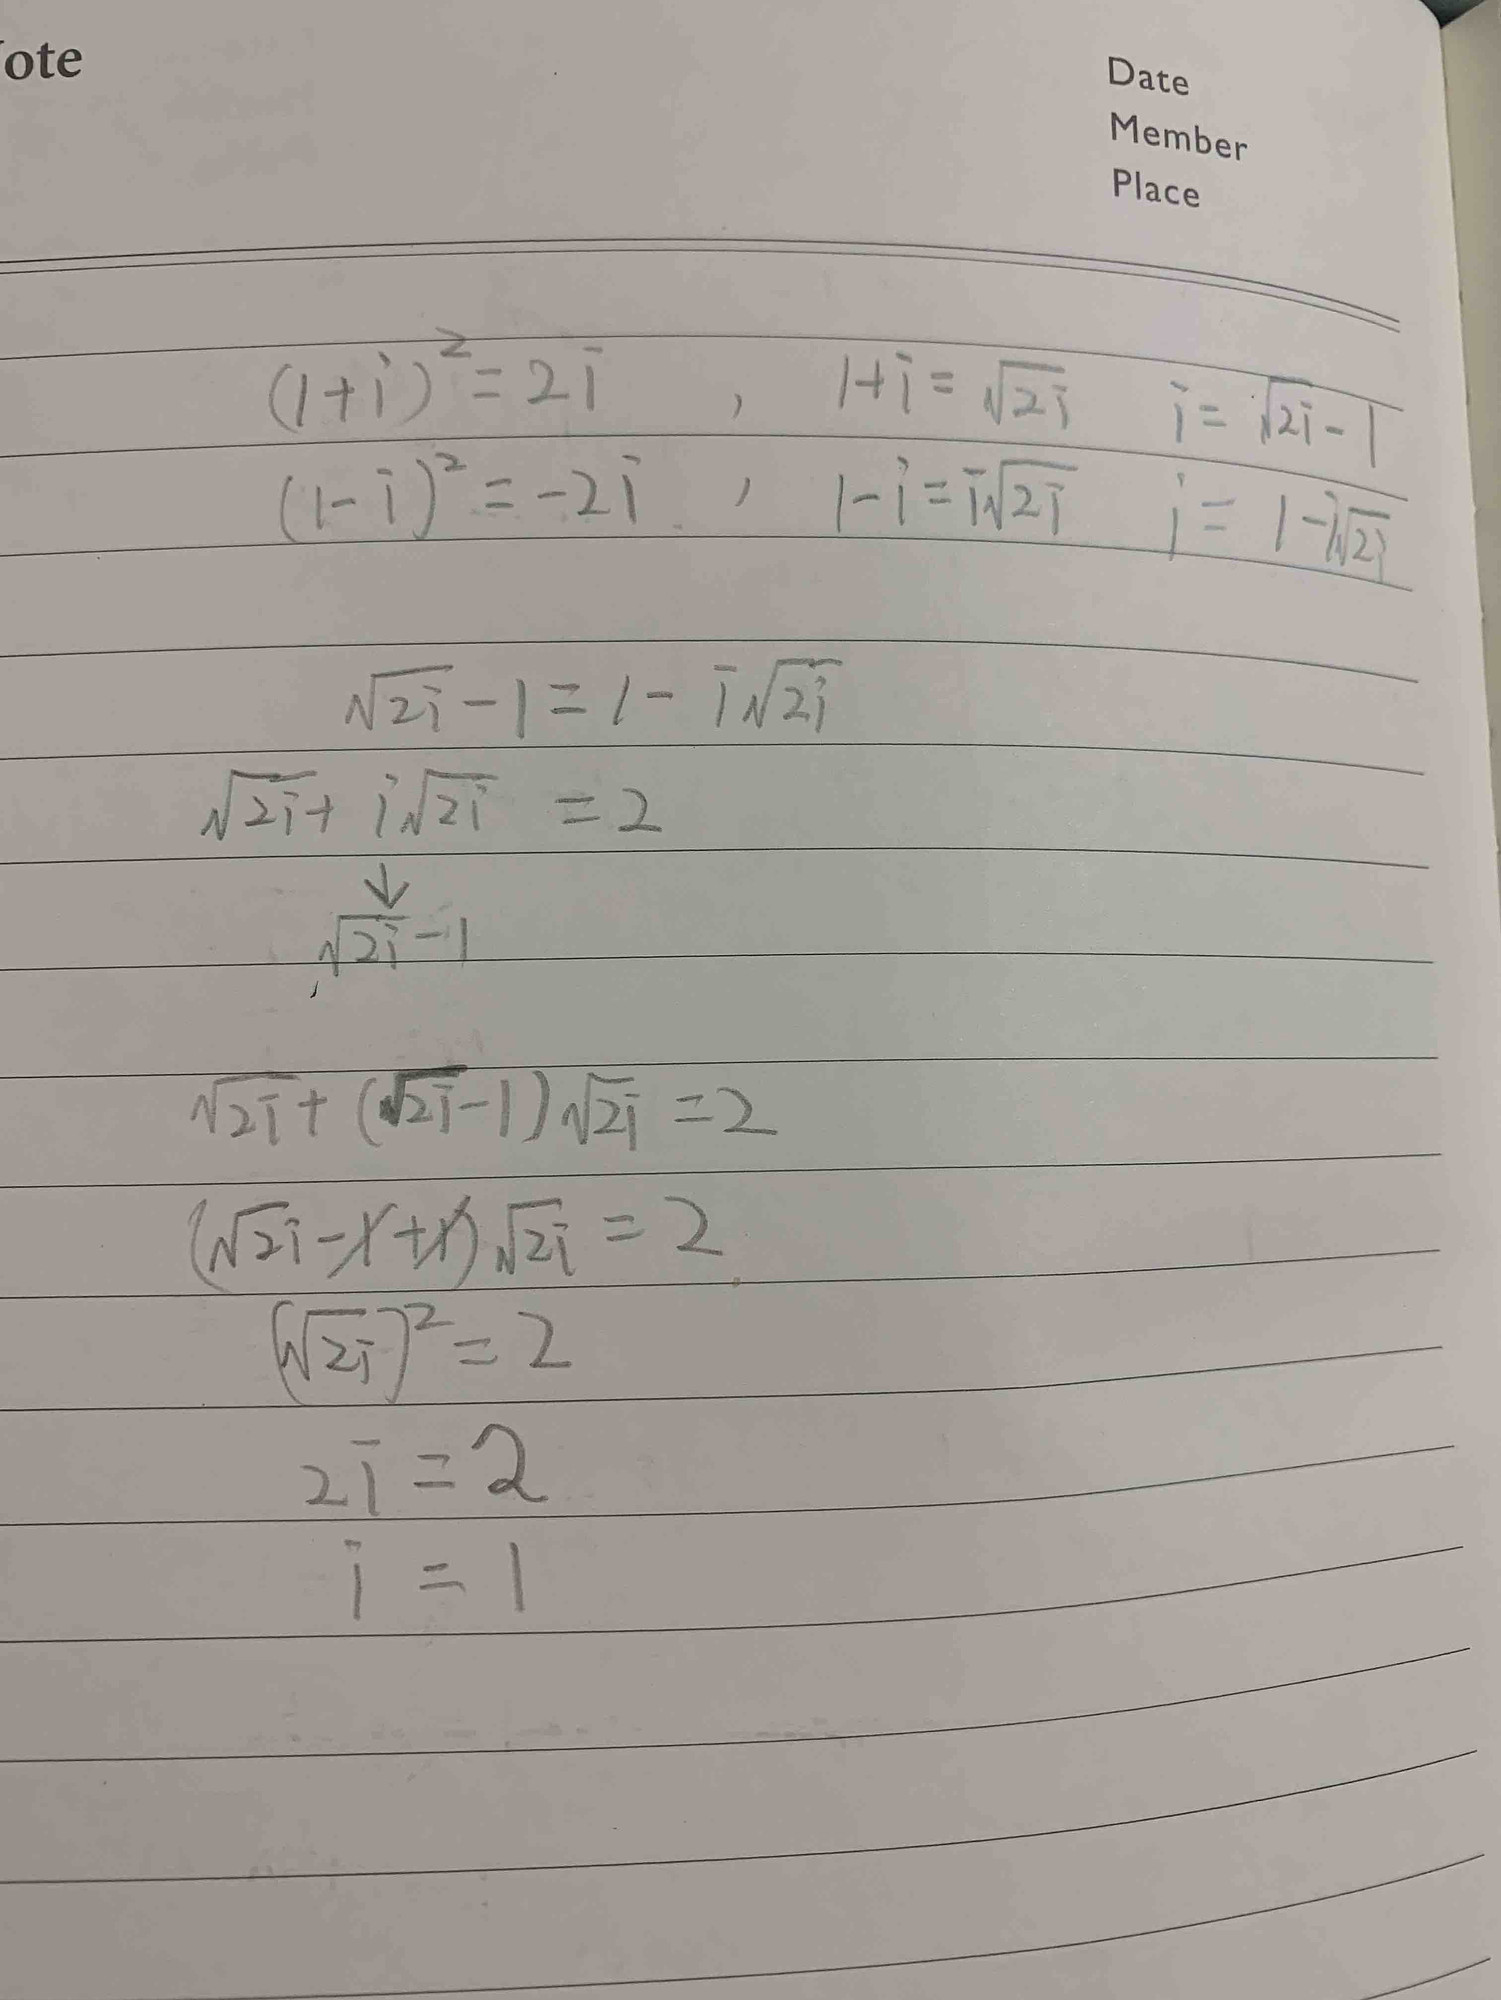 ote
Date
Member
Place
(1+i)² = 2i , 1+i = √2i i = √2i - 1
(1-i)² = -2i , 1-i = i√2i i = 1-i√2i
√2i - 1 = 1 - i√2i
√2i + i√2i = 2
↓
√2i - 1
√2i + (√2i - 1)√2i = 2
(√2i - 1 + 1)√2i = 2
(√2i)² = 2
2i = 2
i = 1